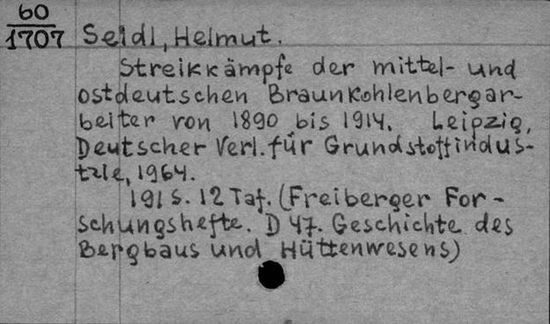 60
1707 Seidl, Helmut.
Streikkämpfe der mittel- und
ostdeutschen Braunkohlenbergar-
beiter von 1890 bis 1914. Leipzig,
Deutscher Verl. für Grundstoffindus-
trie, 1964.
191 S. 12 Taf. (Freiberger For-
schungshefte. D 47. Geschichte des
Bergbaus und Hüttenwesens)